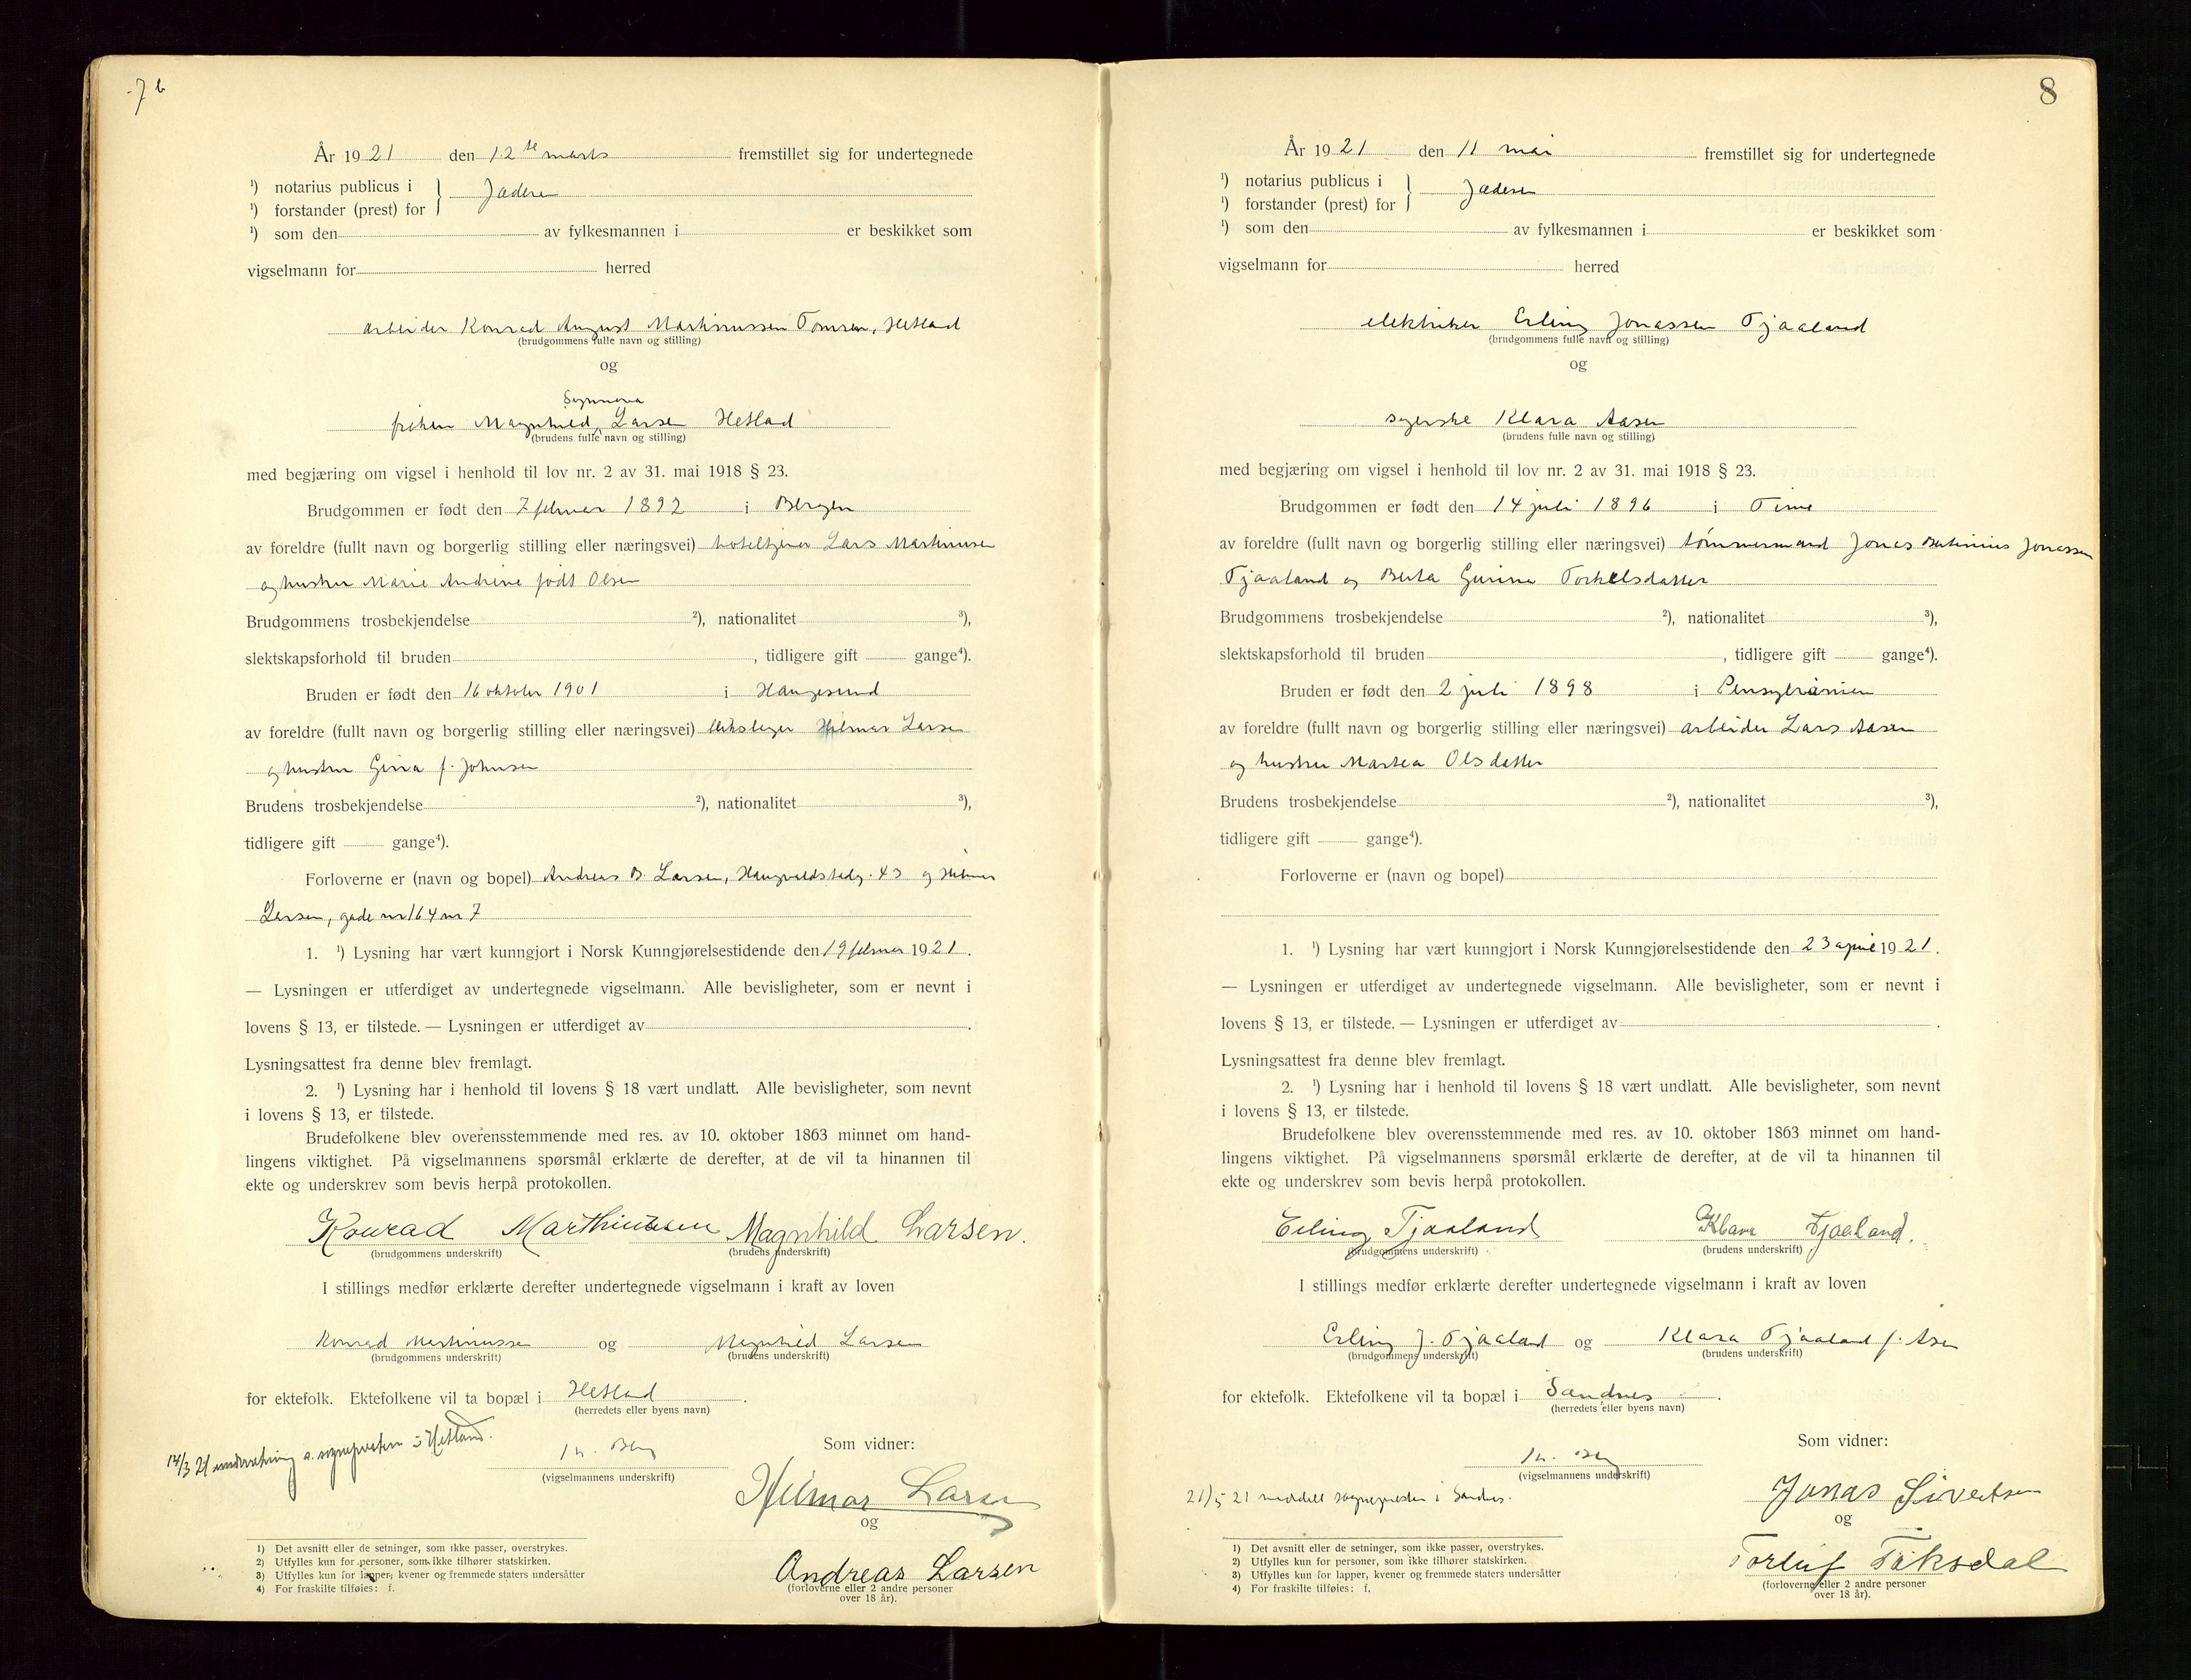 7 b
År 1921 den 12te marts fremstillet sig for undertegnede
¹) notarius publicus i
¹) forstander (prest) for } Jæderen
¹) som den av fylkesmannen i er beskikket som
vigselmann for herred
arbeider Konrad August Martinussen Tomsen, Hetland
(brudgommens fulle navn og stilling)
og
frøken Magnhild Larsen Hetland
(brudens fulle navn og stilling)
med begjæring om vigsel i henhold til lov nr. 2 av 31. mai 1918 § 23.
Brudgommen er født den 7 februar 1892 i Bergen
av foreldre (fullt navn og borgerlig stilling eller næringsvei) hoteltjener Lars Martinusen
og hustru Marie Andrine født Olsen
Brudgommens trosbekjendelse ²), nationalitet ³),
slektskapsforhold til bruden , tidligere gift gange⁴).
Bruden er født den 16 oktober 1901 i Haugesund
av foreldre (fullt navn og borgerlig stilling eller næringsvei) Hilmar Larsen
og hustru Gina f. Johnsen
Brudens trosbekjendelse ²), nationalitet ³),
tidligere gift gange⁴).
Forloverne er (navn og bopel) Andreas B. Larsen, Haugvaldstadg. 43 og Hilmar
Larsen, gade nr 164 nr 7
1. ¹) Lysning har vært kunngjort i Norsk Kunngjørelsestidende den 19 februar 1921.
— Lysningen er utferdiget av undertegnede vigselmann. Alle bevisligheter, som er nevnt i
lovens § 13, er tilstede. — Lysningen er utferdiget av .
Lysningsattest fra denne blev fremlagt.
2. ¹) Lysning har i henhold til lovens § 18 vært undlatt. Alle bevisligheter, som nevnt
i lovens § 13, er tilstede.
Brudefolkene blev overensstemmende med res. av 10. oktober 1863 minnet om hand-
lingens viktighet. På vigselmannens spørsmål erklærte de derefter, at de vil ta hinannen til
ekte og underskrev som bevis herpå protokollen.
Konrad Marthinussen Magnhild Larsen.
(brudgommens underskrift) (brudens underskrift)
I stillings medfør erklærte derefter undertegnede vigselmann i kraft av loven
Konrad Martinussen og Magnhild Larsen
(brudgommens underskrift) (brudens underskrift)
for ektefolk. Ektefolkene vil ta bopæl i Hetland .
(herredets eller byens navn)
14/3 21 underretning s. sognepresten i Hetland.
Som vidner:
(vigselmannens underskrift)
Hilmar Larsen
og
Andreas Larsen
(forloverne eller 2 andre personer
over 18 år).
1) Det avsnitt eller de setninger, som ikke passer, overstrykes.
2) Utfylles kun for personer, som ikke tilhører statskirken.
3) Utfylles kun for lapper, kvener og fremmede staters undersåtter
4) For fraskilte tilføies: f.
8
År 1921 den 11 mai fremstillet sig for undertegnede
¹) notarius publicus i
¹) forstander (prest) for } Jæderen
¹) som den av fylkesmannen i er beskikket som
vigselmann for herred
elektriker Erling Jonassen Tjaaland
(brudgommens fulle navn og stilling)
og
syerske Klara Aasen
(brudens fulle navn og stilling)
med begjæring om vigsel i henhold til lov nr. 2 av 31. mai 1918 § 23.
Brudgommen er født den 14 juli 1896 i Time
av foreldre (fullt navn og borgerlig stilling eller næringsvei) tømmermand Jonas Bertinius Jonassen
Tjaaland og Berta Gurina Torkelsdatter
Brudgommens trosbekjendelse ²), nationalitet ³),
slektskapsforhold til bruden , tidligere gift gange⁴).
Bruden er født den 2 juli 1898 i Pensylvanien
av foreldre (fullt navn og borgerlig stilling eller næringsvei) arbeider Lars Aasen
og hustru Martea Olsdatter
Brudens trosbekjendelse ²), nationalitet ³),
tidligere gift gange⁴).
Forloverne er (navn og bopel)
1. ¹) Lysning har vært kunngjort i Norsk Kunngjørelsestidende den 23 april 1921.
— Lysningen er utferdiget av undertegnede vigselmann. Alle bevisligheter, som er nevnt i
lovens § 13, er tilstede. — Lysningen er utferdiget av .
Lysningsattest fra denne blev fremlagt.
2. ¹) Lysning har i henhold til lovens § 18 vært undlatt. Alle bevisligheter, som nevnt
i lovens § 13, er tilstede.
Brudefolkene blev overensstemmende med res. av 10. oktober 1863 minnet om hand-
lingens viktighet. På vigselmannens spørsmål erklærte de derefter, at de vil ta hinannen til
ekte og underskrev som bevis herpå protokollen.
Erling Tjaaland Klara Tjaaland.
(brudgommens underskrift) (brudens underskrift)
I stillings medfør erklærte derefter undertegnede vigselmann i kraft av loven
Erling J. Tjaaland og Klara Tjaaland f. Asen
(brudgommens underskrift) (brudens underskrift)
for ektefolk. Ektefolkene vil ta bopæl i Sandnes .
(herredets eller byens navn)
Som vidner:
(vigselmannens underskrift)
21/5 21 meddelt sognepresten i Sandnes.
Jonas Sivertsen
og
Torleif Taksdal
(forloverne eller 2 andre personer
over 18 år).
1) Det avsnitt eller de setninger, som ikke passer, overstrykes.
2) Utfylles kun for personer, som ikke tilhører statskirken.
3) Utfylles kun for lapper, kvener og fremmede staters undersåtter
4) For fraskilte tilføies: f.